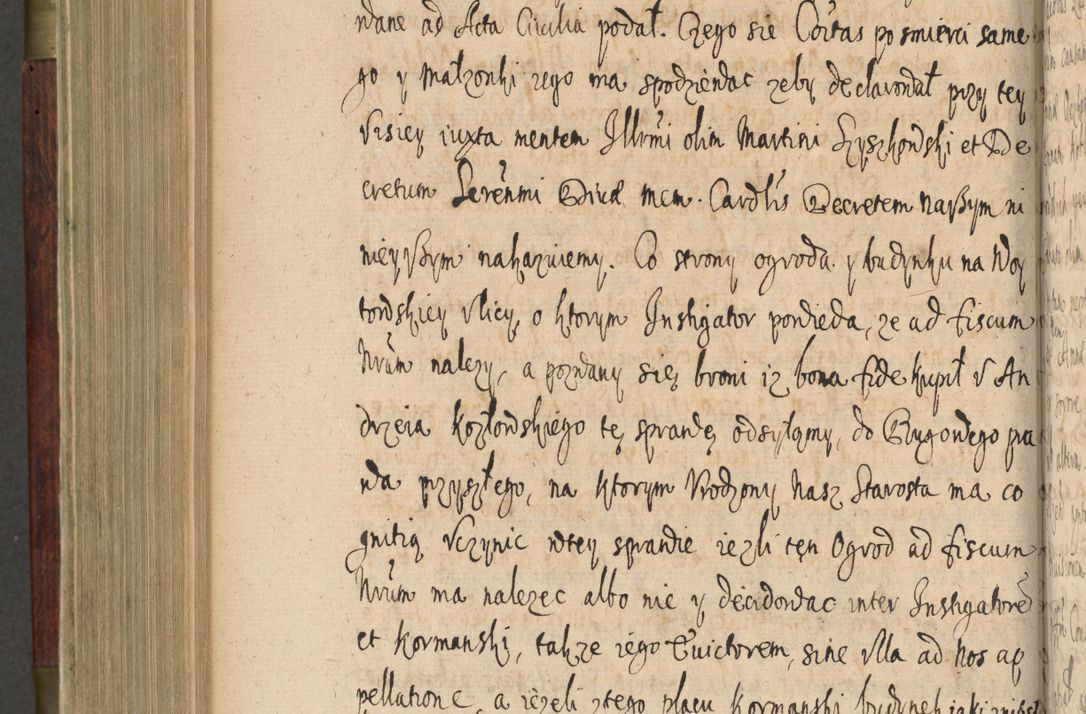 wane ad Acta Civilia podał. Czego sie Coitas po smierci same
go y małzonki iego ma spodziewac zeby declarował przy tey
Visiey iuxta mentem Illrmi olim Martini Szyszkowski et De
cretum Serenmi Divæ mem. Cardlis Decretem naßym ni
nieyßym nakazuiemy. Co strony ogroda y budynku na Woy
towskiey Vlicy, o ktorym Instigator powieda, ze ad fiscum
Nrum nalezy, a pozwany się broni iz bona fide kupił v An
drzeia Kozłowskiego tę sprawę odsyłamy, do Bugowego pra
wa przyszłego, na ktorym Vrodzony Nasz Starosta ma co
gnitią Vczynic wtey sprawie iezli ten Ogrod ad fiscum
Nrum ma nalezec albo nie y decidowac inter Instigatorē
et Kormanski, takze iego Euictorem, sine vlla ad nos ap
pellatione, a iezeli ztego placu Kormanski budynek iaki